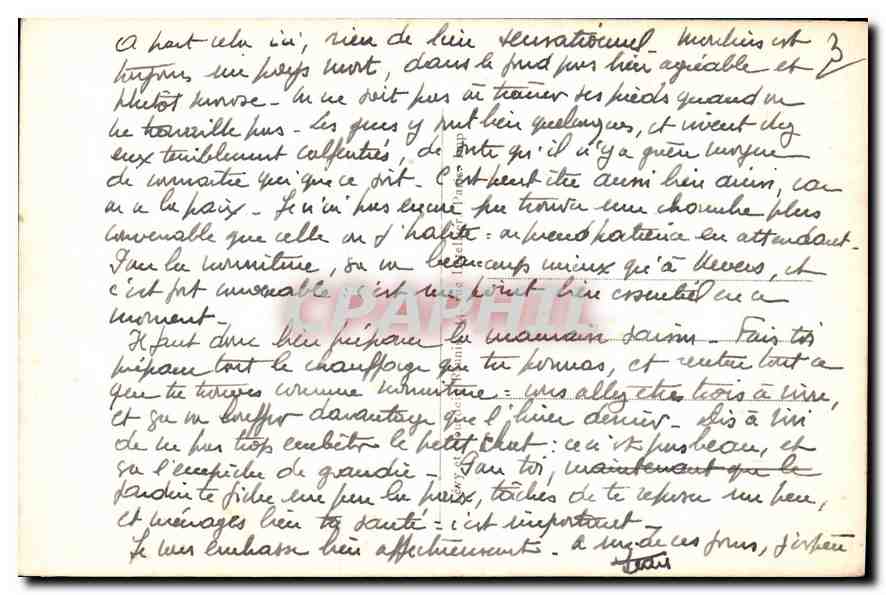 A part cela ici, rien de bien sensationnel - Moulins est 3/
toujours un pays mort, dans le fond pas bien agréable et
plutôt morose - On ne sait pas où traîner ses pieds quand on
ne travaille pas - Les gens y sont bien quelconques, et vivent chez
eux terriblement calfeutrés, de sorte qu'il n'y a guère moyen
de connaître qui que ce soit - C'est peut être aussi bien ainsi, car
on a la paix - Je n'ai pas encore pu trouver une chambre plus
convenable que celle où j'habite = on prend patience en attendant -
Pour la nourriture, ça va beaucoup mieux qu'à Nevers, et
c'est fort convenable, c'est un point bien essentiel en ce
moment -
Il faut donc bien préparer la mauvaise saison - Fais toi
préparer tout le chauffage que tu pourras, et rentre tout ce
que tu trouves comme nourriture = vous allez être trois à vivre,
et ça va bouffer davantage que l'hiver dernier - Dis à
de ne pas trop embêter le petit chat : ce n'est pas beau, et
ça l'empêche de grandir - Pour toi, maintenant que le
jardin te fiche un peu la paix, tâches de te reposer un peu,
et ménages bien ta santé = c'est important -
Je vous embrasse bien affectueusement - A un de ces jours, j'espère
Jean
CPAPHIL